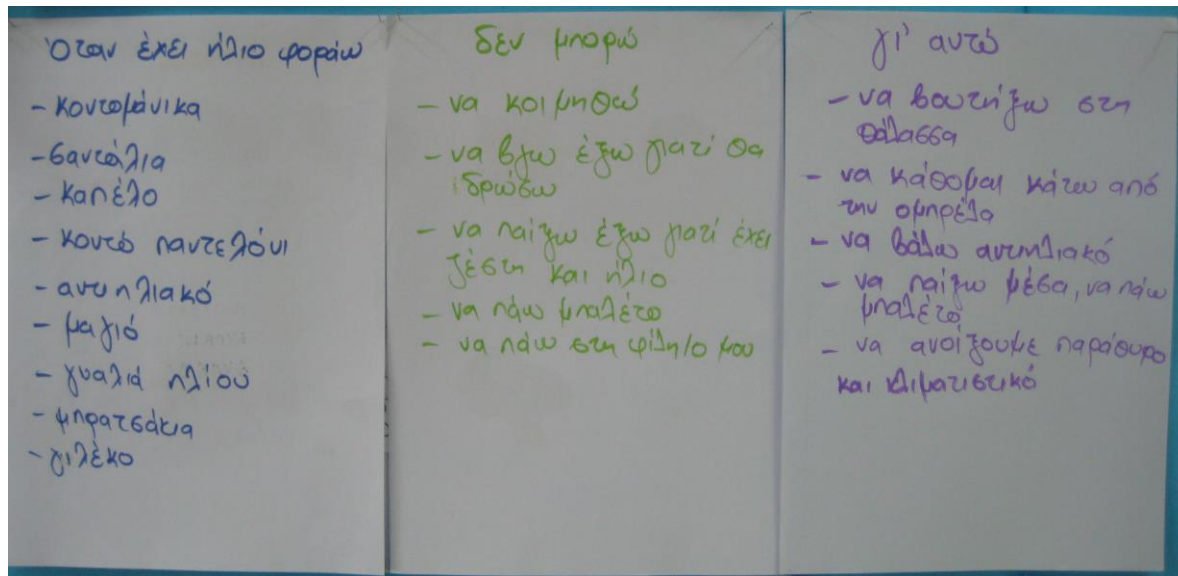 Όταν έχει ήλιο φοράω
- κοντομάνικα
- σαντάλια
- καπέλο
- κοντό παντελόνι
- αντηλιακό
- μαγιό
- γυαλιά ηλίου
- μπρατσάκια
- γιλέκο
δεν μπορώ
- να κοιμηθώ
- να βγω έξω γιατί θα
ιδρώσω
- να παίξω έξω γιατί έχει
ζέστη και ήλιο
- να πάω μπαλέτο
- να πάω στη φίλη/ο μου
γι' αυτό
- να βουτήξω στη
θάλασσα
- να κάθομαι κάτω από
την ομπρέλα
- να βάλω αντηλιακό
- να παίξω μέσα, να πάω
μπαλέτο
- να ανοίξουμε παράθυρο
και κλιματιστικό